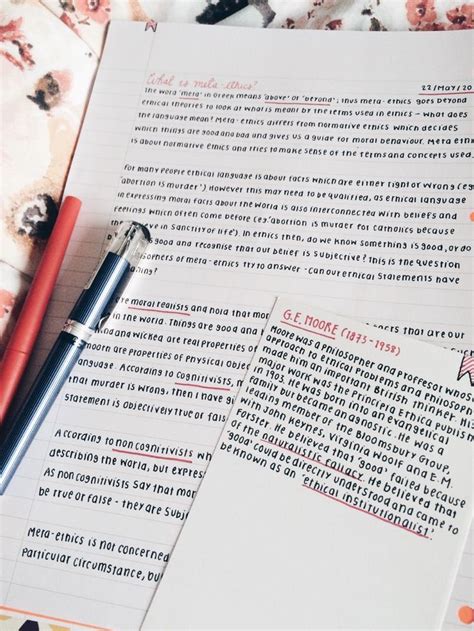 What is meta-ethics?
22/MAY/20
The word 'meta' in Greek means 'above' or 'beyond'; thus meta-ethics goes beyond
ethical theories to look at what is meant by the terms used in ethics - what does
the language mean? Meta-ethics differs from normative ethics which decides
which things are good and bad and gives us a guide for moral behaviour. Meta eth
is about normative ethics and tries to make sense of the terms and concepts used.
For many people ethical language is about facts which are either right or wrong (eg
'abortion is murder') However this may need to be qualified, as ethical language
in expressing moral facts about the world is also interconnected with beliefs and
feelings which often come before (eg 'abortion is murder for Catholics because
they believe in Sanctity of life'). In ethics then, do we know something is good, or do
good and recognise that our belief is subjective? This is the question
of meta-ethics try to answer - can our ethical Statements have
are moral realists and hold that mor
cepts that are our
in the world. Things are good
and wicked are real properties o
are properties of Physical obje
language. According to Cognitivists, m
that murder is wrong, then I have gi
Statement is objectively true or fals
According to non cognitivists wh
describing the world, but expres
As non cognitivists say that mor
be true or false - they are Subj
Meta-ethics is not concerned
particular circumstance, but
G.E. MOORE (1873-1958)
Moore was a philosopher and Proffesor whose
approach to ethical problems and philosop
made him an important British thinker. His
major work was the Principia Ethica publis
in 1903. He was born into an evangelical
family but became an agnostic. He was a
leading member of the Bloomsbury Group,
with John Keynes, Virginia Woolf and E.M.
Forster. He believed that 'good' failed because
of the naturalistic fallacy. He believed that
'good' could be directly understood and came to
be known as an 'ethical institutionalist'